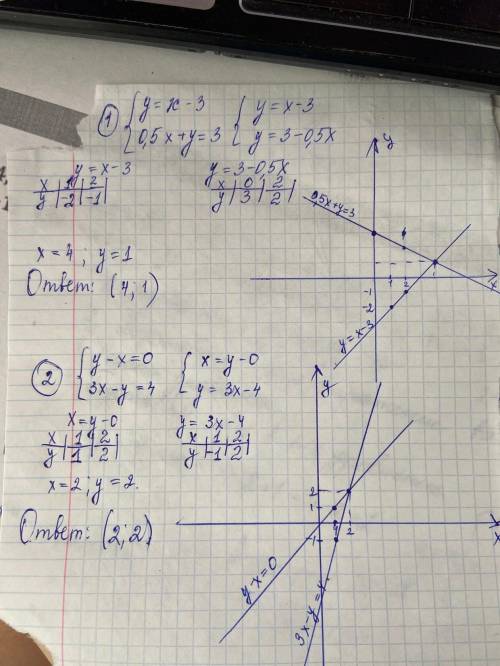 ① { y = x - 3 { y = x - 3
0,5x + y = 3 y = 3 - 0,5x
y = x - 3 y = 3 - 0,5x
x | 1 | 2 | x | 0 | 2 |
y | -2 | -1 | y | 3 | 2 |
x = 4 ; y = 1
Ответ: (4; 1)
y
0,5x+y=3
1 2
x
-1
-2
y=x-3
② { y - x = 0 { x = y - 0
3x - y = 4 y = 3x - 4
x = y - 0 y = 3x - 4
x | 1 | 2 | x | 1 | 2 |
y | 1 | 2 | y | -1 | 2 |
x = 2 ; y = 2.
Ответ: (2; 2)
y
2
1
1 2
x
-1
y-x=0
3x-y=4